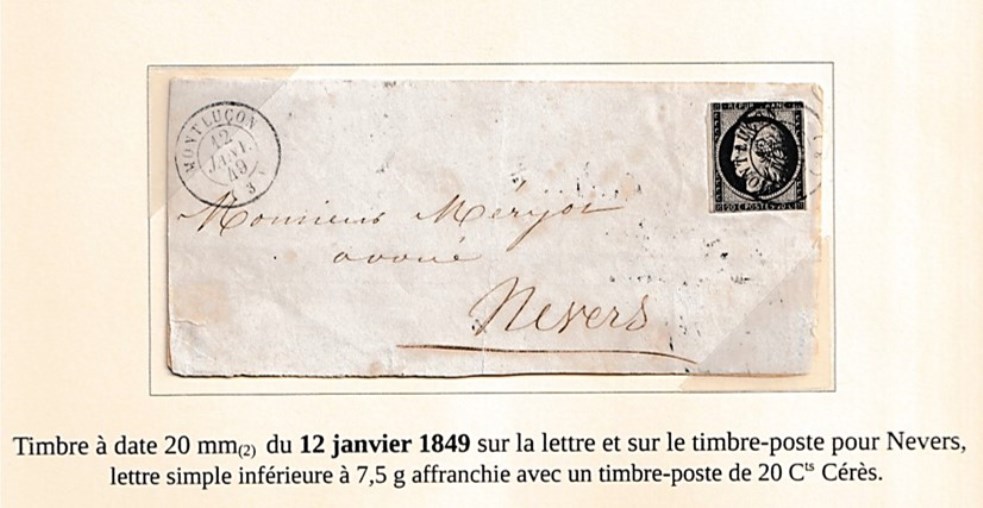 MONTLUÇON
12
JANV.
49
3
REPUB FRANC
MONTLUÇON
20 C POSTE 20 C
Monsieur Méryot
avoué
Nevers
Timbre à date 20 mm(2) du 12 janvier 1849 sur la lettre et sur le timbre-poste pour Nevers,
lettre simple inférieure à 7,5 g affranchie avec un timbre-poste de 20 Cts Cérès.